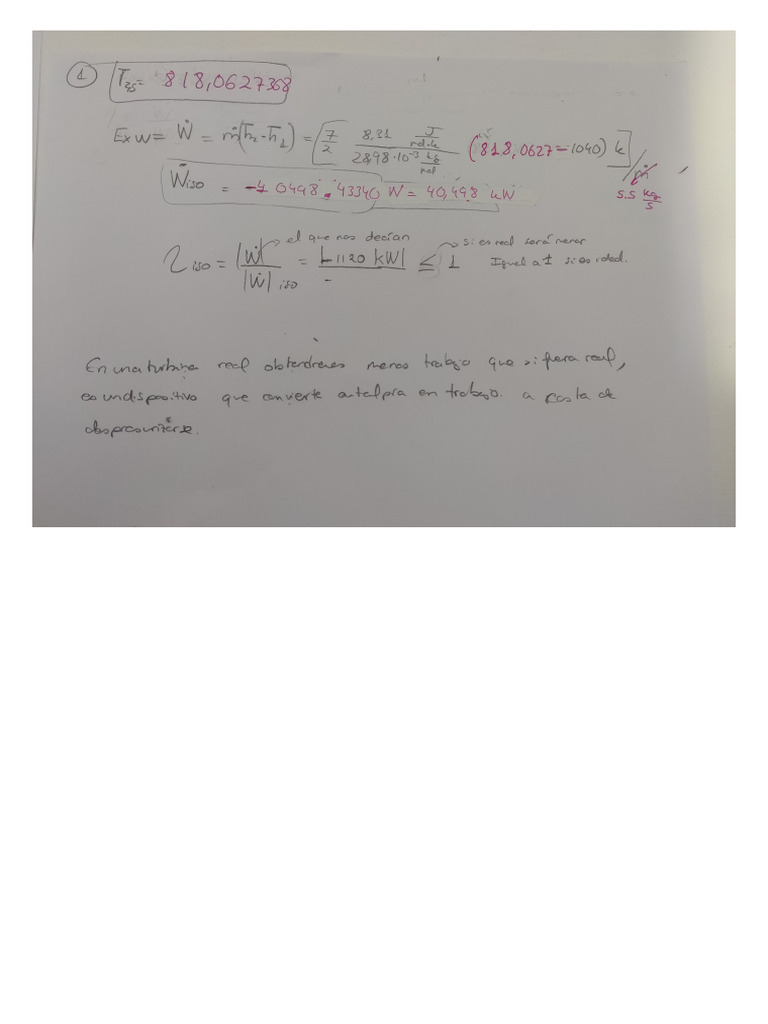 ① T2s= 818,0627368
Exw= Ẇ = ṁ(h̄2-h̄1) = [7/2 8,31 J/mol·k / 28,98·10⁻³ kg/mol (818,0627-1040) k] / ṁ
5.5 kg/s
Ẇiso = -40498.43340 W = 40,498 kW
el que nos decían
si es real será menor
ηiso = |Ẇ|/|Ẇ|iso = |-1120 kW|/- ≤ 1 Igual a 1 si es ideal.
En una turbina real obtendremos menos trabajo que si fuera real,
es un dispositivo que convierte entalpía en trabajo. a costa de
despresurizarse.